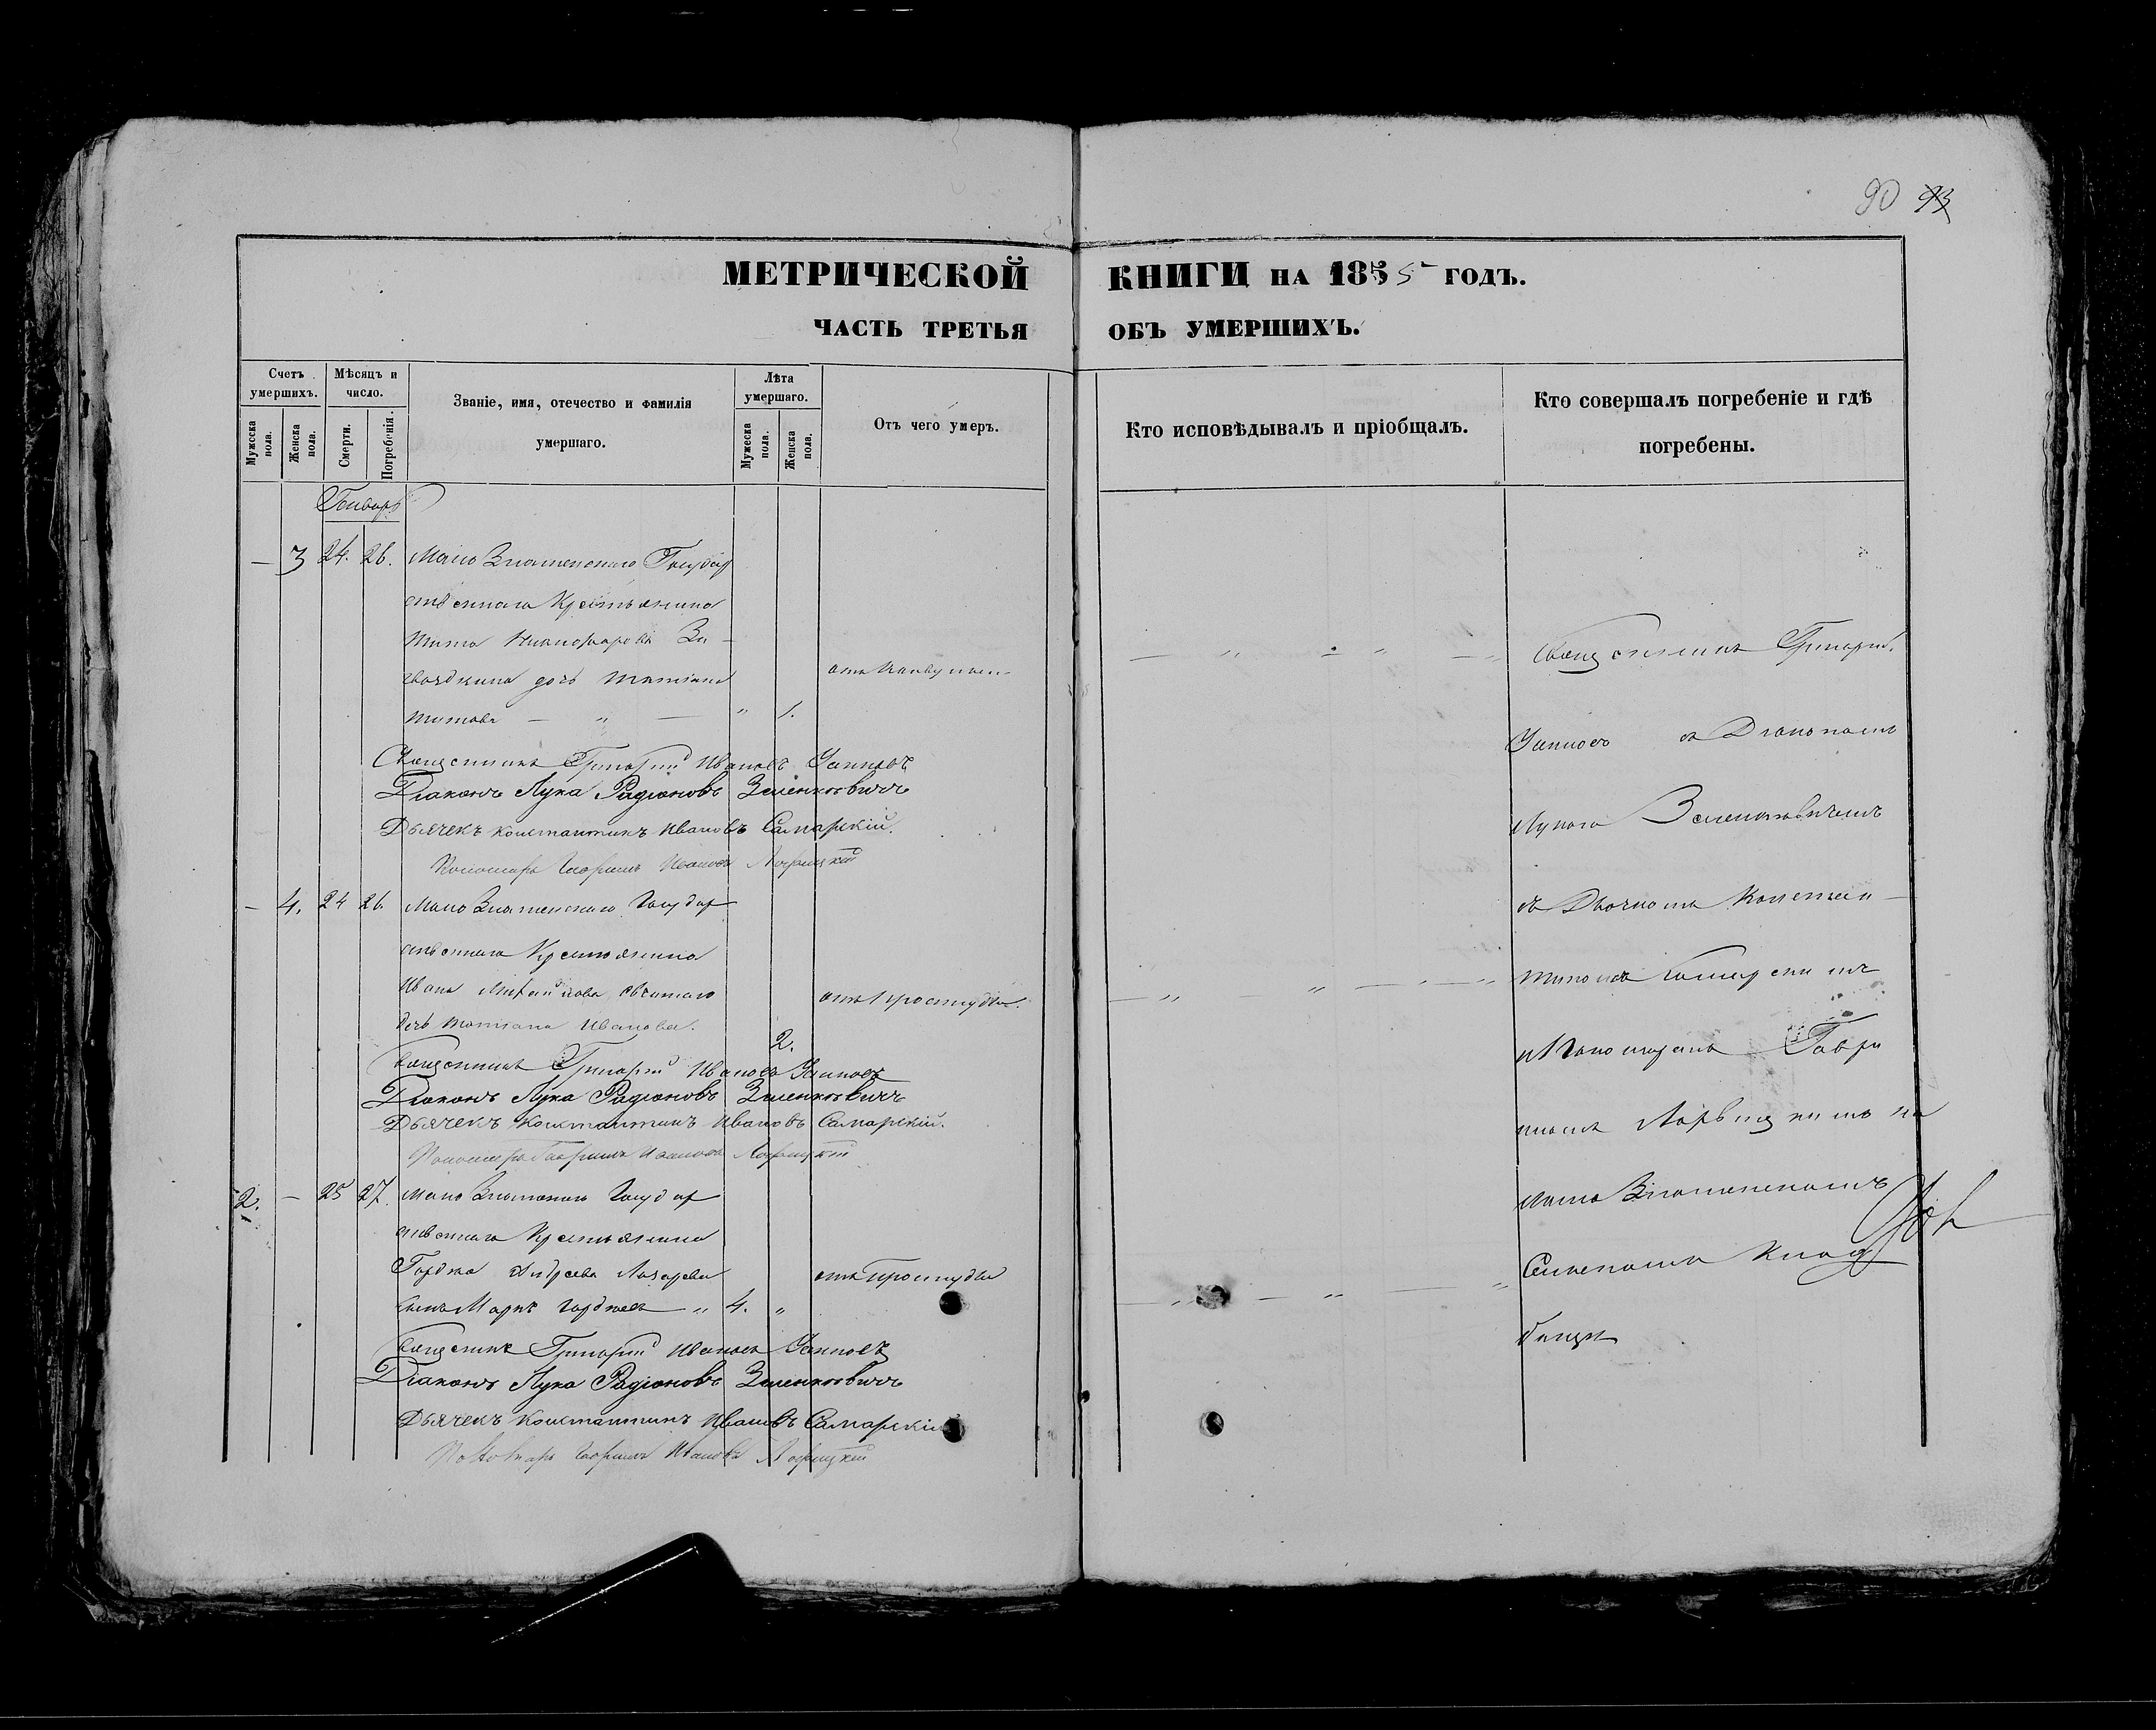 90 93
МЕТРИЧЕСКОЙ КНИГИ НА 1855 ГОДЪ.
ЧАСТЬ ТРЕТЬЯ ОБЪ УМЕРШИХЪ.
Счетъ умершихъ.
Мужеска пола.
Женска пола.
Мѣсяцъ и число.
Смерти.
Погребенія.
Званіе, имя, отечество и фамилія умершаго.
Лѣта умершаго.
Мужеска пола.
Женска пола.
Отъ чего умеръ.
Кто исповѣдывалъ и пріобщалъ.
Кто совершалъ погребеніе и гдѣ погребены.
Генварь
— 3 24. 26. Мало Знаменскаго Государ
ственнаго Крестьянина
Тита Никифорова
дочь Татіана
Титова — " — " 1.
Священникъ Григорій Ивановъ
Діаконъ Лука Радіоновъ Зеленкевичъ
Дьячекъ Константинъ Ивановъ Самарскій.
Пономарь Гавріилъ Ивановъ
— 4. 24 26. Мало Знаменскаго Государ
ственнаго Крестьянина
Ивана Михайлова
отъ простуды.
дочь Татіана Иванова. 2.
Священникъ Григорій Ивановъ
Діаконъ Лука Радіоновъ Зеленкевичъ
Дьячекъ Константинъ Ивановъ Самарскій.
Пономарь Гавріилъ Ивановъ
2. — 25 27. Мало Знаменскаго Государ
ственнаго Крестьянина
Гордѣя Андреева Лазарева
отъ простуды
сынъ Маркъ Гордѣевъ " 4. "
Священникъ Григорій Ивановъ
Діаконъ Лука Радіоновъ Зеленкевичъ
Дьячекъ Константинъ Ивановъ Самарскій
Пономарь Гавріилъ Ивановъ
Священникъ Григорій
съ Діакономъ
Лукою Зеленкевичемъ
съ Дьячкомъ Констан—
тиномъ Самарскимъ
и Пономаремъ Гаврі
иломъ на
Мало Знаменскомъ
Сельскомъ Клад
бищи